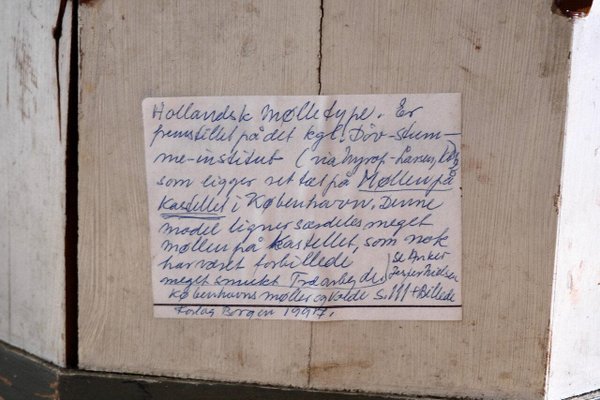 Hollandsk Mølletype. Er
fremstillet på det kgl. Døv-stum-
me-institut (
som ligger ret tæt på Møllen på
Kastellet i København. Denne
model ligner særdeles meget
møllen på Kastellet, som nok
har været forbillede
meget smukt Træarbejde. Se Anker
Jesper Nielsen
Københavns møller og Volde S. 111 + Billede
Forlag Borgen 1997.